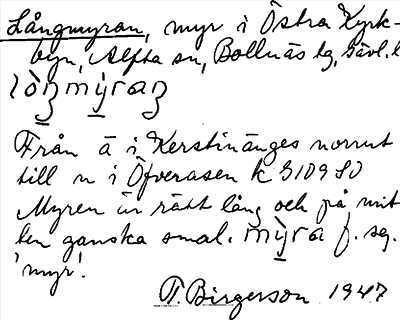 Långmyran, myr i Östra Kyrk-
byn, Alfta sn, Bollnäs tg, Gävl. l
Från ä i Kerstinänges norrut
till n i Öfverasen k 3109 SO
Myren är rätt lång och på mit
ten ganska smal. f. sg.
'myr'.
T. Birgerson 1947